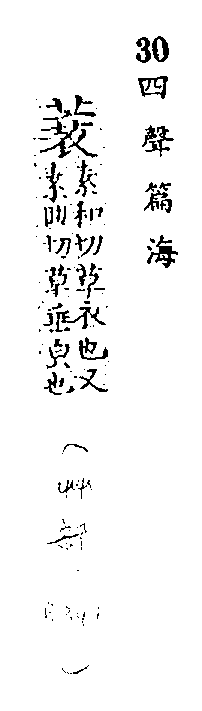 30 四聲篇海
蓑
素和切草衣也又
素囘切草垂皃也
（艸部